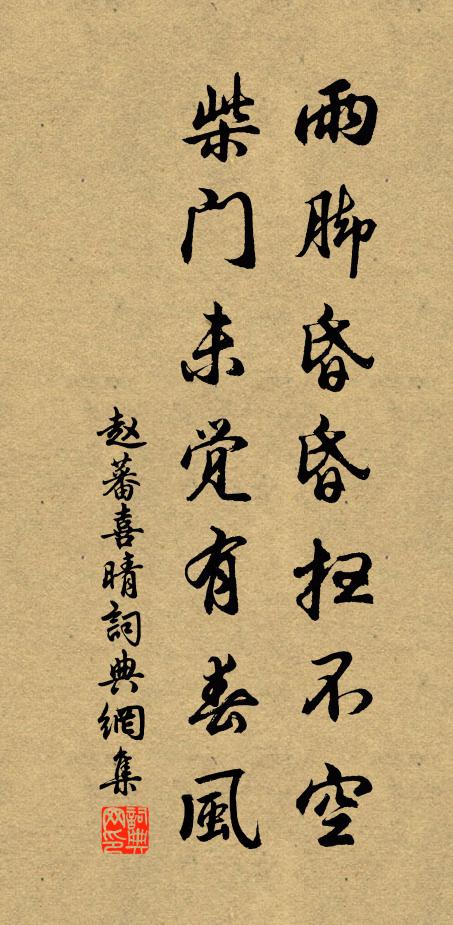 雨脚昏昏扫不空
柴门未觉有春風
赵蕃喜晴詞典網集
詞典网印